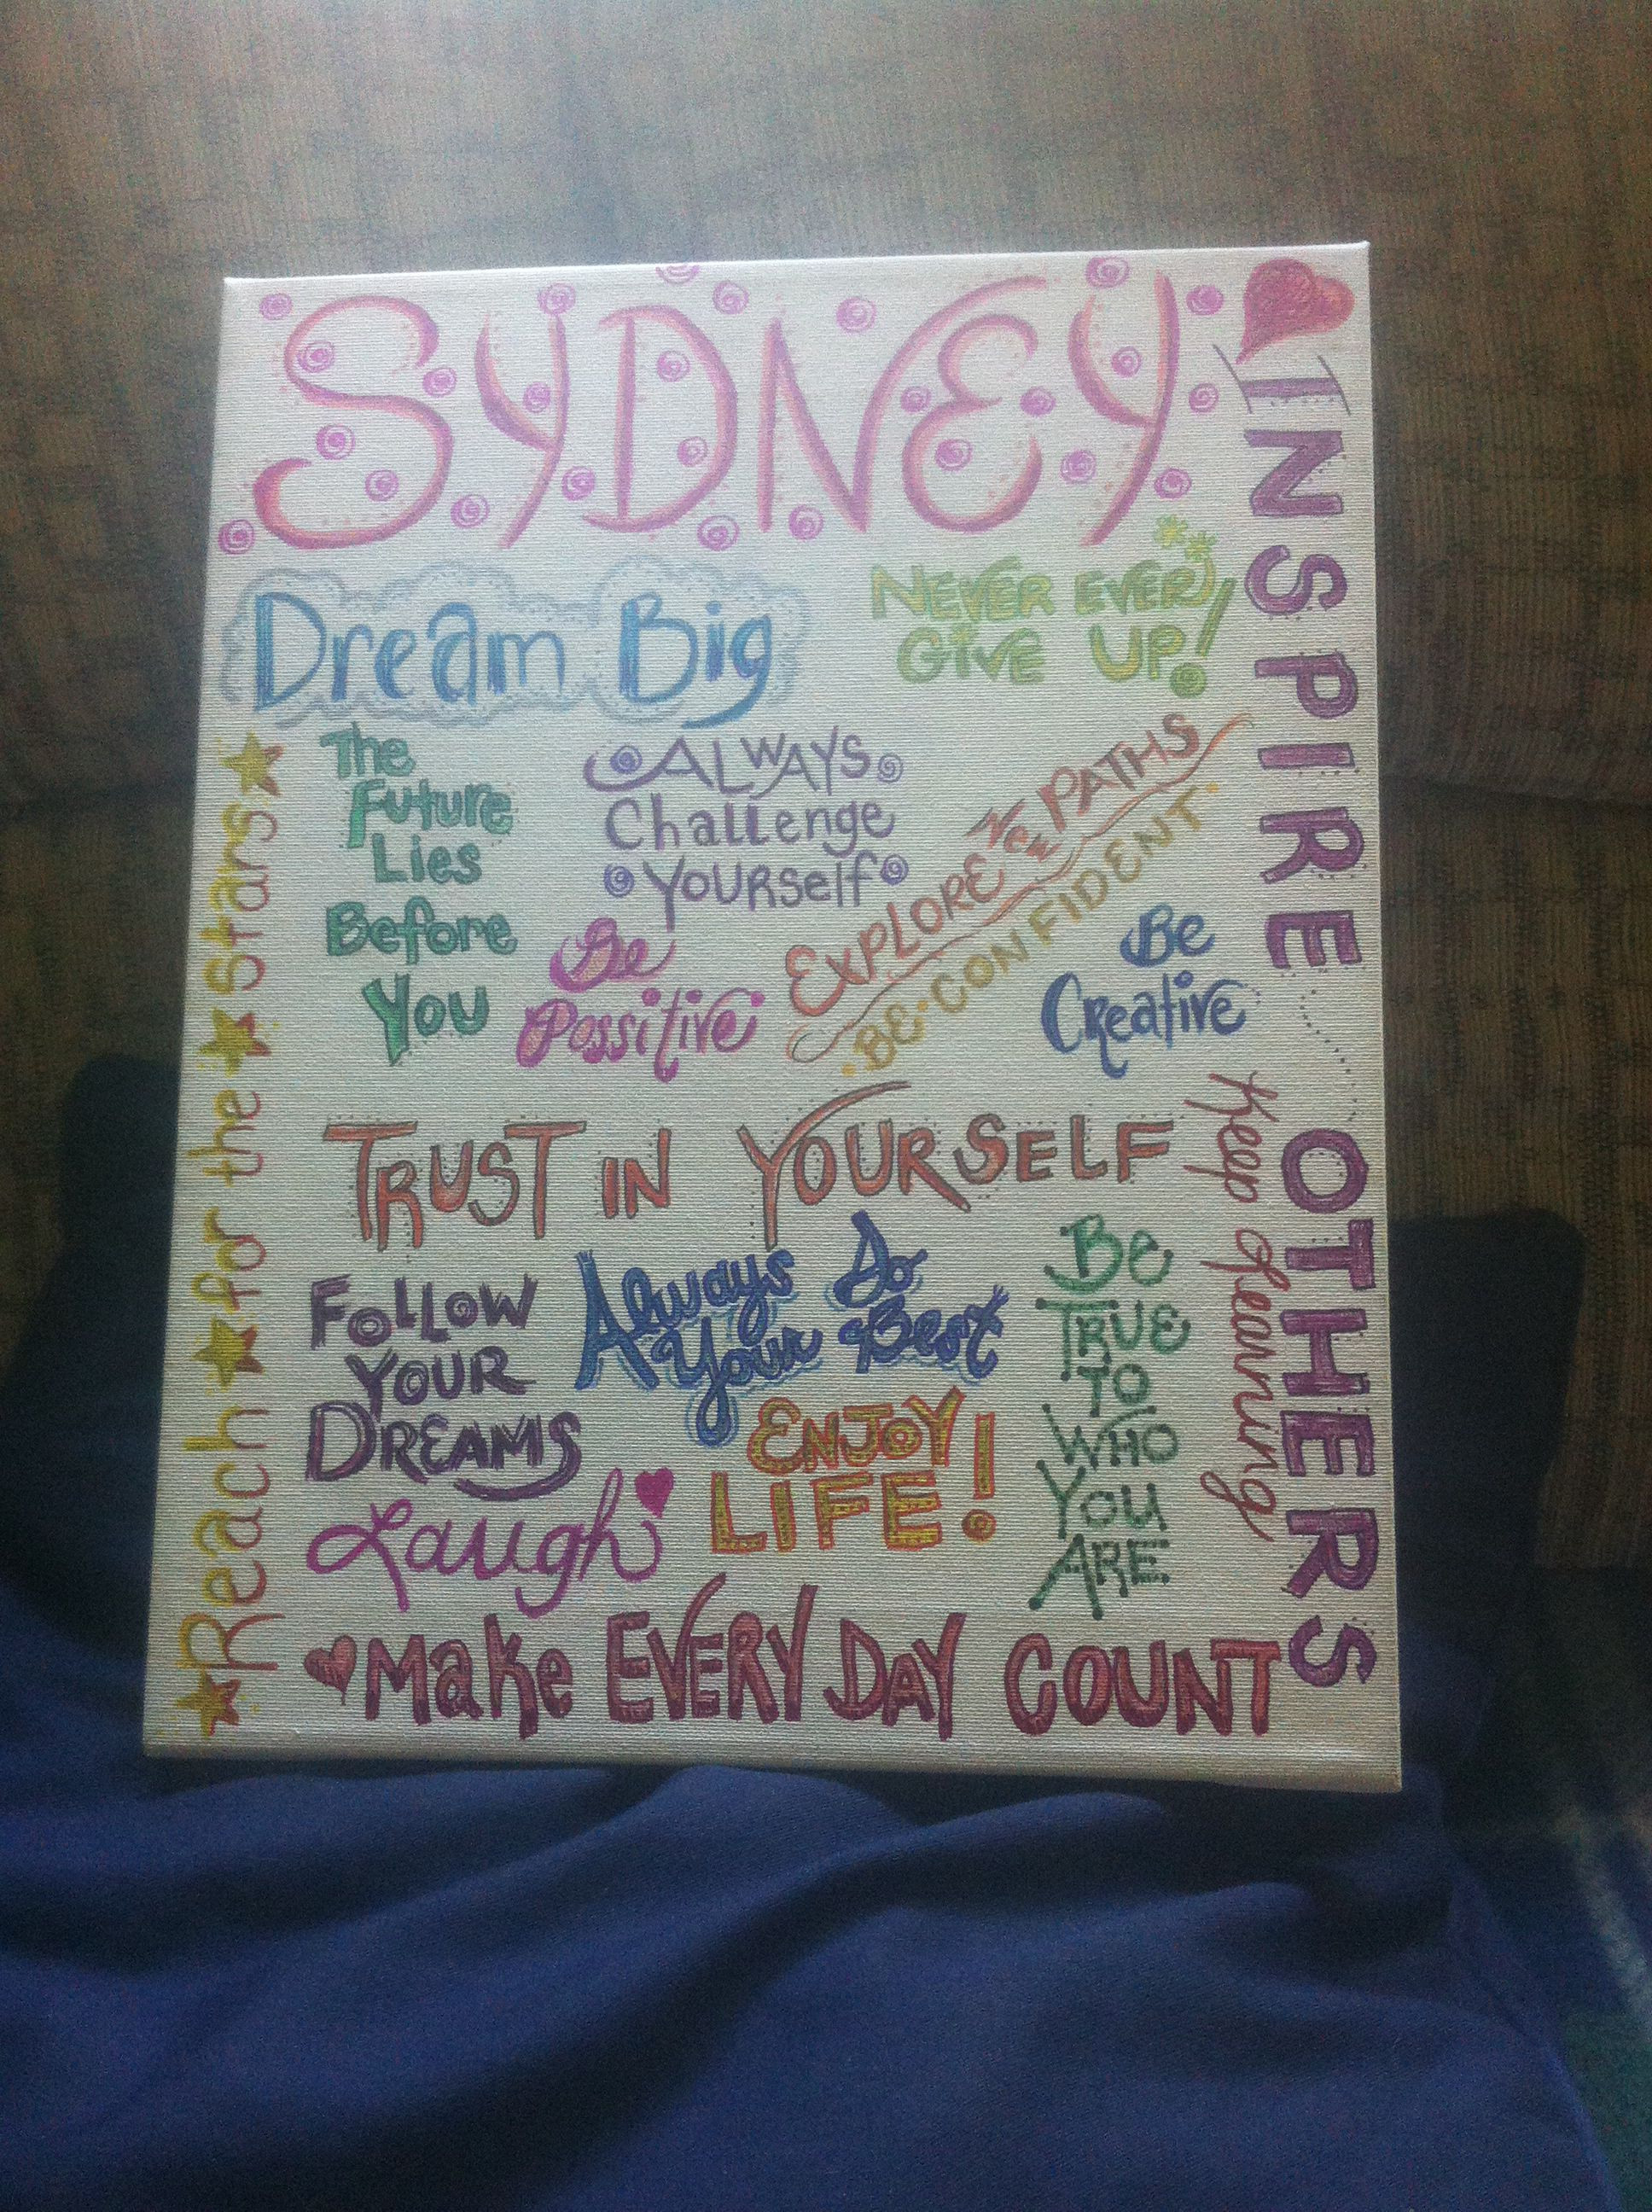 SYDNEY
Dream Big
NEVER EVER
GIVE UP!
The
Future
Lies
Before
You
ALWAYS
Challenge
Yourself
EXPLORE NEW PATHS
BE CONFIDENT
Be
Possitive
Be
Creative
TRUST IN YOURSELF
FOLLOW
YOUR
DREAMS
Always Do
Your Best
BE
TRUE
TO
WHO
YOU
ARE
Laugh
ENJOY
LIFE!
Make EVERY DAY COUNT
Reach for the Stars
INSPIRE OTHERS
Keep Learning